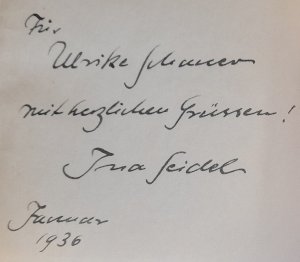 Für
Ulrike Schauer
mit herzlichen Grüssen!
Ina Seidel
Januar
1936